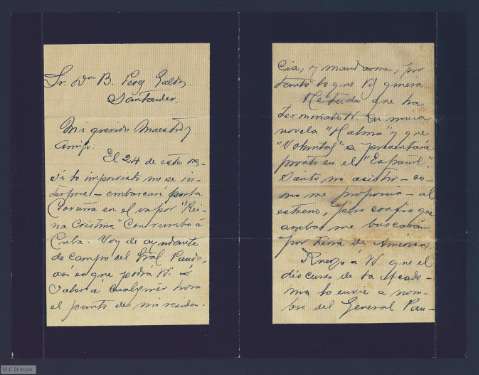 Sr. Dn B. Perez Galdós
Santander.
Mi querido Maestro y
amigo:
El 24 de este mes,
si lo impensado no se in-
terpone - embarcaré para la
Coruña en el vapor "Rei-
na Cristina" con rumbo á
Cuba. Voy de ayudante
de campo del Gral. Pando,
así es que podrá V.
saber á cualquier hora
el punto de mi residen-
cia, y mandarme, por
tanto lo que V quiera.
He sabido que ha
terminado V. su nueva
novela "Halma" y que
"Voluntad" se presentará
pronto en el "Español".
Siento no asistir - co-
mo me proponía - al
estreno, pero confío que
por tierra de America.
Ruego á V que el
discurso de la Acade-
mia lo envíe á nom-
bre del General Pan-